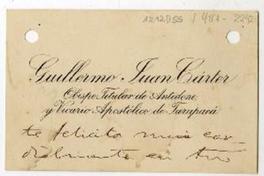 1212955 / 481-2242
Guillermo Juan Cárter
Obispo Titular de Antedone
y Vicario Apostólico de Tarapacá
te felicito mui cor-
dialmente en tu